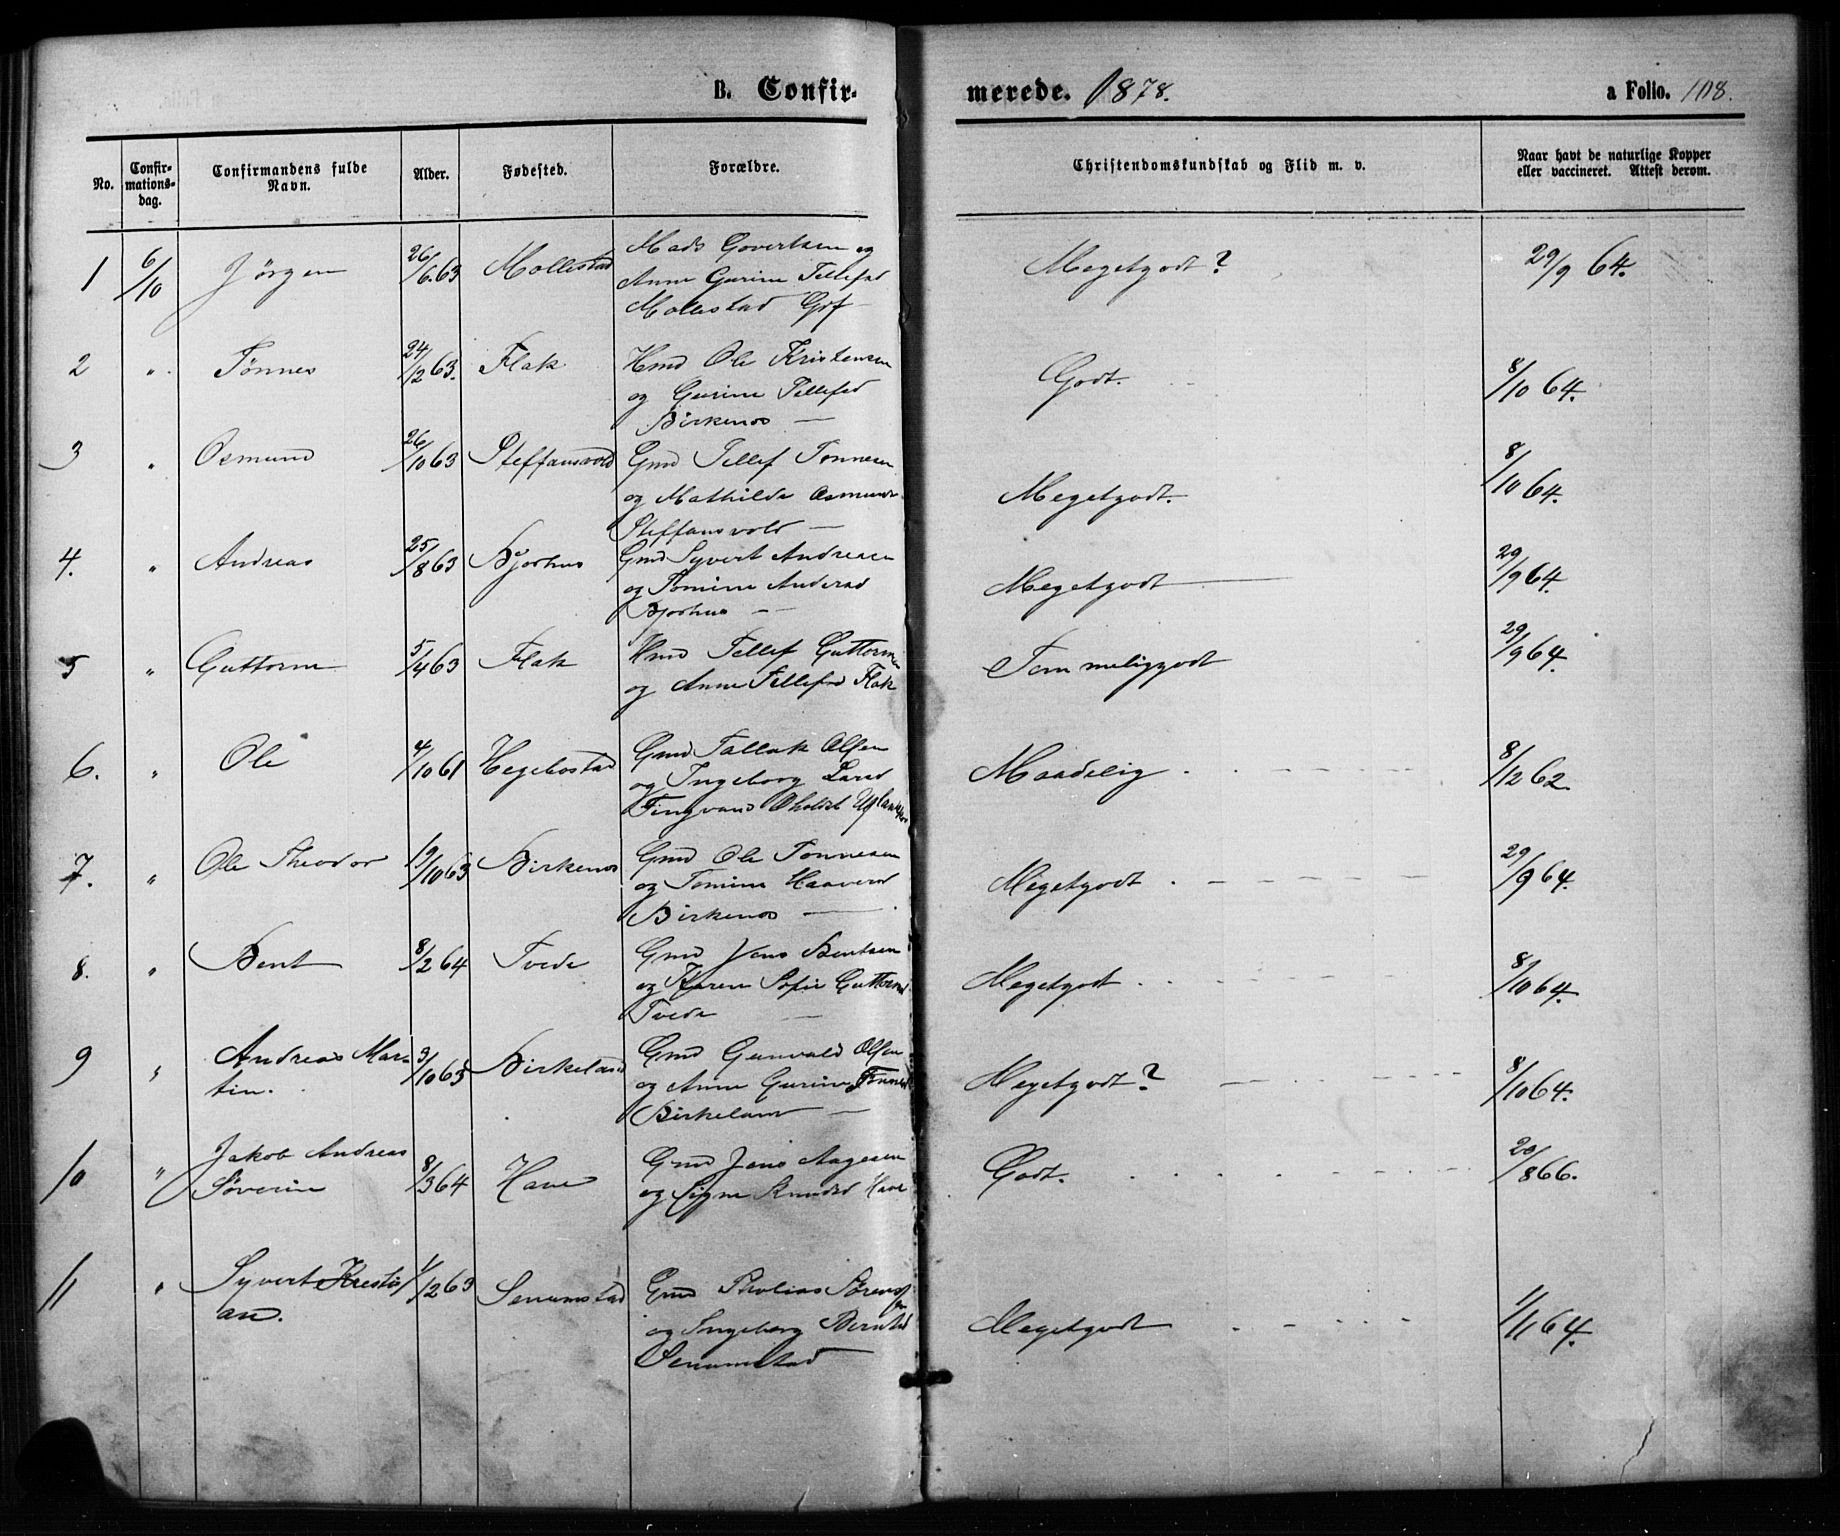 B. Confir-
merede. 1878.
a Folio. 108.
No.
Confir-
mations-
dag.
Confirmandens fulde
Navn.
Alder.
Fødested.
Forældre.
Christendomskundskab og Flid m. v.
Naar havt de naturlige Kopper
eller vaccineret. Attest derom.
1 6/10 Jørgen 26/6.63 Mollestad
Mads Govertsen og
Anne Gurine Tellefsd
Mollestad Gif
Megetgodt? 29/9 64.
2 " Tønnes 24/12 63. Flak
Hmd Ole Kristensen
og Gurine Tellefsd
Birkenes —
Godt. 8/10 64.
3 " Osmund 26/10 63 Steffansvold
Gmd Tellef Tønnesen
og Mathilde Osmunds
Steffansvold —
Megetgodt. 8/10 64.
4. " Andreas 25/8 63 Bjorhus
Gmd Syvert Andreasen
og Tomine Andersd
Bjorhus —
Megetgodt 29/9 64.
5 " Guttorm 5/4 63 Flak
Hmd Tellef Guttorms
og Anne Tellefsd Flak
Temmeliggodt 29/9 64.
6. " Ole 4/10 61 Hegebostad
Gmd Tallak Olsen
og Ingeborg Larsd
Tingvand
Maadelig 8/12 62.
7. " Ole Theodor 19/10 63 Birkenes
Gmd Ole Tønnesen
og Tomine Haaversd
Birkenes —
Megetgodt 29/9 64.
8. " Bent 8/2 64 Tvede
Gmd Jens Bentsen
og Karen Sofie Guttormsd
Tvede —
Megetgodt 8/10 64.
9 " Andreas Mar-
tin. 3/10 63 Birkeland
Gmd Gunvald Olsen
og Anne Gurine Tønnesd
Birkeland —
Megetgodt? 8/10 64.
10 " Jakob Andreas
Søverin 8/3 64 Have
Gmd Jens Aagesen
og Signe Knudsd Have
Godt. 20/8 66.
11 " Syvert Kresti-
an. 1/12 63 Senumstad
Gmd Tholias Sørens-
sen
og Ingeborg Berntsd
Senumstad
Megetgodt 1/11 64.